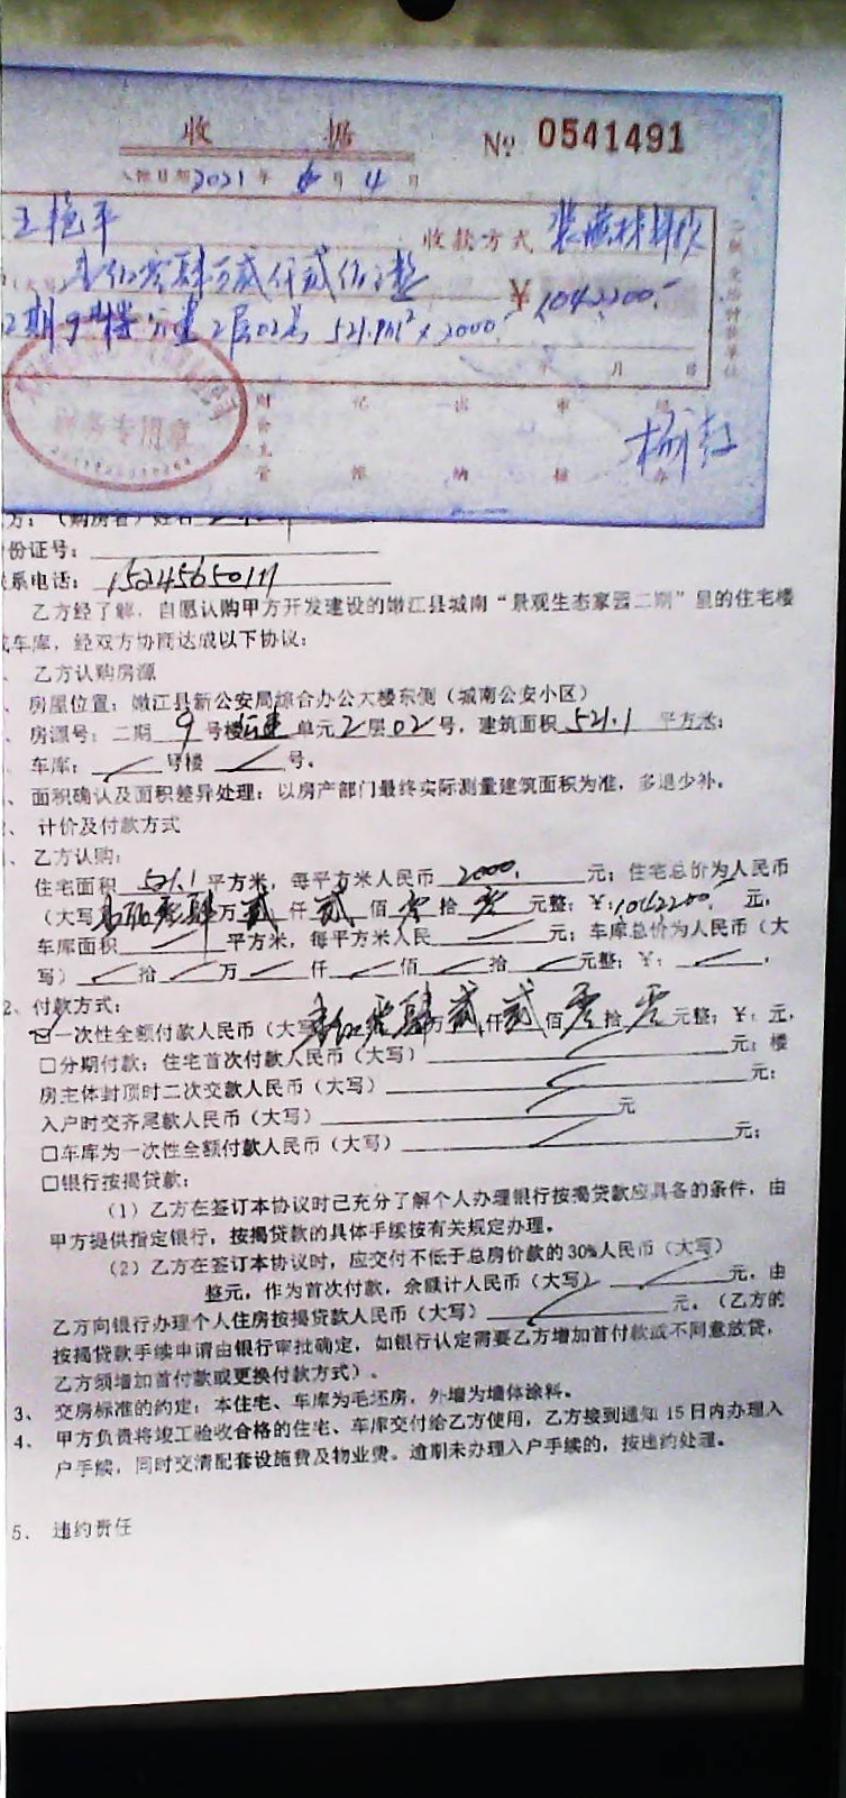 收 据
№ 0541491
入账日期2021年6月4日
王艳平 收款方式
壹佰零肆万贰仟贰佰元整 ¥1042200.-
2期9#楼 2层02号 521.1m²×2000.
年 月 日
财务专用章
财会主管 记账 出纳 审核 经办
方：（购房者）姓名
份证号：
系电话：15245650111
乙方经了解，自愿认购甲方开发建设的嫩江县城南“景观生态家园二期”里的住宅楼
或车库，经双方协商达成以下协议：
、 乙方认购房源
、 房屋位置：嫩江县新公安局综合办公大楼东侧（城南公安小区）
、 房源号：二期 9 号楼 单元2层02号，建筑面积 521.1 平方米；
车库： 号楼 号。
、 面积确认及面积差异处理：以房产部门最终实际测量建筑面积为准，多退少补。
、 计价及付款方式
、 乙方认购：
住宅面积 521.1 平方米，每平方米人民币 2000. 元；住宅总价为人民币
（大写 壹佰零肆万 贰 仟 贰 佰 零 拾 零 元整；¥：1042200. 元，
车库面积 平方米，每平方米人民 元；车库总价为人民币（大
写） 拾 万 仟 佰 拾 元整；¥： ，
2、付款方式：
☑一次性全额付款人民币（大写 壹佰零肆万贰仟贰佰零拾零元整；¥：元，
□分期付款：住宅首次付款人民币（大写） 元；楼
房主体封顶时二次交款人民币（大写） 元；
入户时交齐尾款人民币（大写） 元
□车库为一次性全额付款人民币（大写） 元；
□银行按揭贷款：
（1）乙方在签订本协议时已充分了解个人办理银行按揭贷款应具备的条件，由
甲方提供指定银行，按揭贷款的具体手续按有关规定办理。
（2）乙方在签订本协议时，应交付不低于总房价款的30%人民币（大写）
整元，作为首次付款，余额计人民币（大写） 元，由
乙方向银行办理个人住房按揭贷款人民币（大写） 元。（乙方的
按揭贷款手续申请由银行审批确定，如银行认定需要乙方增加首付款或不同意放贷，
乙方须增加首付款或更换付款方式）。
3、 交房标准的约定：本住宅、车库为毛坯房，外墙为墙体涂料。
4、 甲方负责将竣工验收合格的住宅、车库交付给乙方使用，乙方接到通知15日内办理入
户手续，同时交清配套设施费及物业费。逾期未办理入户手续的，按违约处理。
5、 违约责任